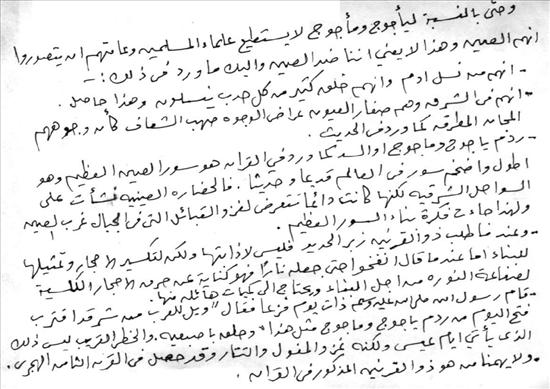 وحتى بالنسبة ليأجوج ومأجوج لا يستطيع علماء المسلمين وعامتهم ان يتصوروا
انهم الصين وهذا لا يعني اننا ضد الصين واليك ما ورد في ذلك :-
- انهم من نسل ادم وانهم خلق كثير من كل حدب ينسلون وهذا حاصل.
- انهم في الشرق وهم صغار العيون عراض الوجوه صهب الشعاف كأن وجوههم
المجان المطرقة كما ورد في الحديث.
- ردم ياجوج وماجوج او السد كما ورد في القران هو سور الصين العظيم وهو
اطول واضخم سور في العالم قديما وحديثا. فالحضاره الصينيه نشأت على
السواحل الشرقيه لكنها كانت دائما تتعرض لغزو القبائل التي في الجبال غرب الصين
ولهذا جاءت فكرة بناء السور العظيم.
- وعندما طلب ذو القرنين زبر الحديد فليس لاذابتها ولكن لتكسير الاحجار وتمثيلها
للبناء اما عندما قال انفخوا حتى جعله نارا فهو كناية عن حرق الاحجار الكلسية
لصناعة النوره من اجل البناء ويحتاج الى كميات هائله منها.
- قام رسول الله صلى الله عليه وسلم ذات يوم فزعا فقال "ويل للعرب من شر قد اقترب
فتح اليوم من ردم ياجوج وماجوج مثل هذا" وحلق باصبعيه. والخطر القريب ليس ذلك
الذي يأتي ايام عيسى ولكنه غزو المغول والتتار وقد حصل في القرن الثامن الهجري.
ولا يهمنا من هو ذو القرنين المذكور في القران.